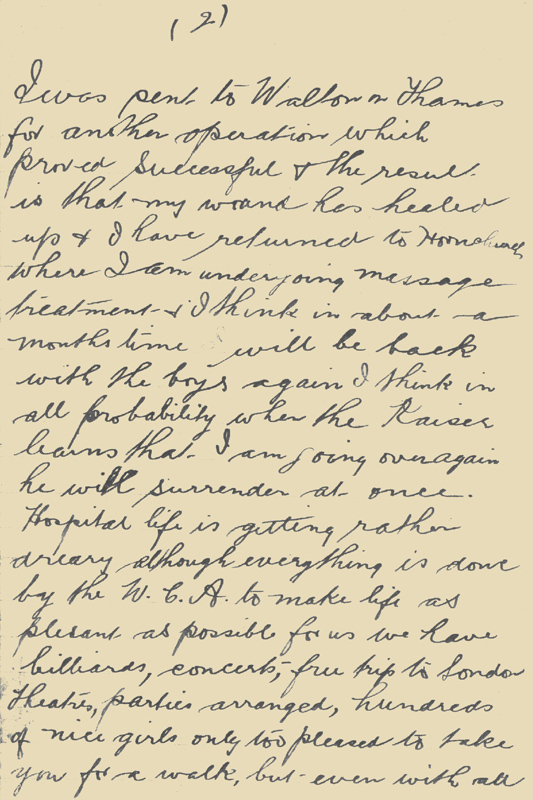 (2)
I was sent to Walton on Thames
for another operation which
proved successful & the result
is that my wound has healed
up & I have returned to Hornchurch
where I am undergoing massage
treatment & I think in about a
months time will be back
with the boys again I think in
all probability when the Kaiser
learns that I am going over again
he will surrender at once.
Hospital life is getting rather
dreary although everything is done
by the W.C.A. to make life as
plesant as possible for us we have
billiards, concerts, free trip to London
Theatres, parties arranged, hundreds
of nice girls only too pleased to take
you for a walk, but even with all